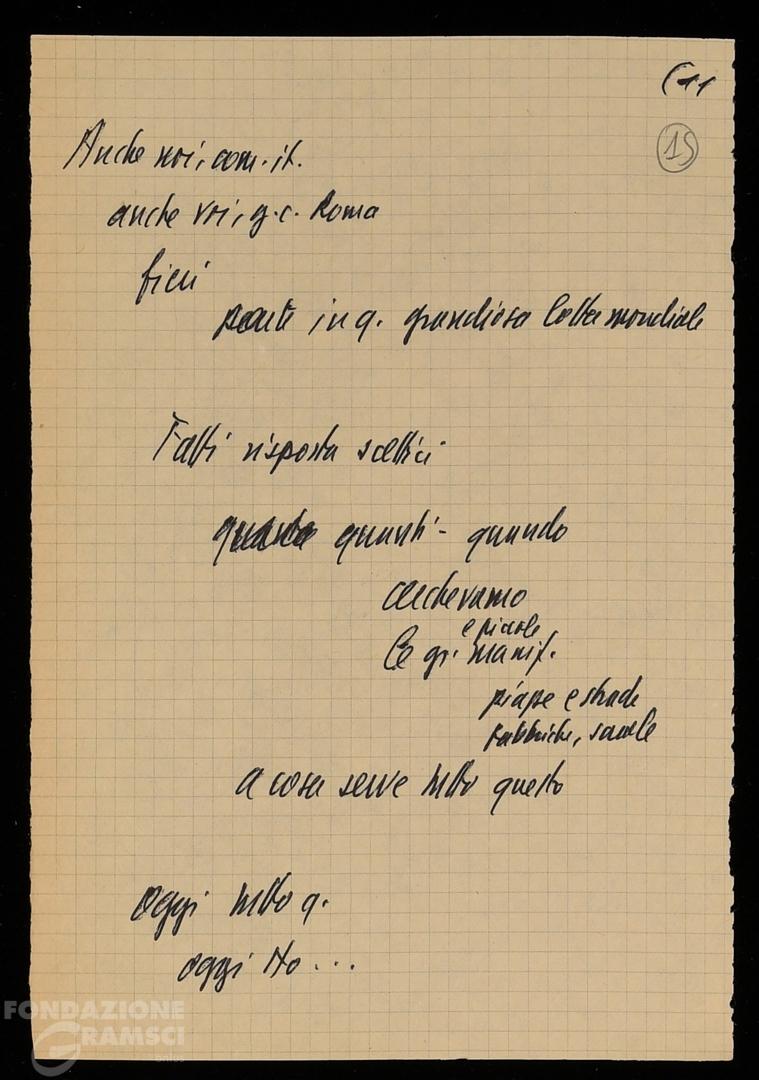 (11
15
Anche noi, com. it.
anche voi, g.c. Roma
fieri
parte in q. grandiosa lotta mondiale
Fatti risposta scettici
quanti - quando
e piccole
le gr. manif.
piazze e strade
fabbriche, scuole
a cosa serve tutto questo
oggi tutto q.
oggi No...
FONDAZIONE
GRAMSCI
onlus